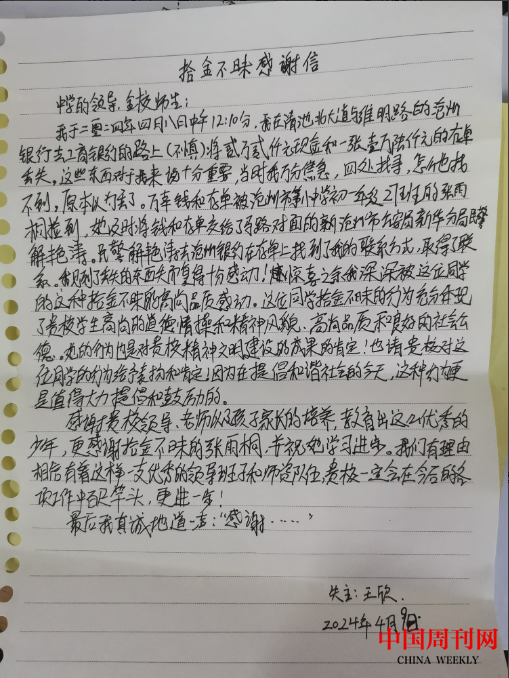 拾金不昧感谢信
中学的领导、全校师生：
我于二零二四年四月八日中午12:10分，我在清池北大道与维明路的沧州
银行去工商银行的路上（不慎）将贰万贰仟元现金和一张壹万陆仟元的存单
丢失。这些东西对于我来说十分重要，当时我万分焦急，四处找寻，怎么也找
不到，原本以为丢了。万幸钱和存单被沧州市第 中学初一年级21班的张雨
桐捡到，她及时将钱和存单交给了马路对面的 沧州市公安局新华分局民警
解艳涛。民警解艳涛去沧州银行在存单上找到了我的联系方式，取得了联
系。我见到丢失的东西失而复得十分感动！惊喜之余我深深被这位同学
的这种拾金不昧的高尚品质感动。这位同学拾金不昧的行为充分体现
了贵校学生高尚的道德情操和精神风貌、高尚品质和良好的社会公
德。她的行为也是对贵校精神文明建设的成果的肯定！也请贵校对这
位同学的行为给予表扬和肯定；因为在提倡和谐社会的今天，这种行为更
是值得大力提倡和鼓励的。
感谢贵校领导、老师以及孩子家长的培养，教育出这么优秀的
少年，更感谢拾金不昧的张雨桐，并祝她学习进步。我们有理由
相信有着这样一支优秀的领导班子和师资队伍，贵校一定会在今后的各
项工作中百尺竿头，更进一步！
最后我真诚地道一声：“感谢……”
失主：王欣
2024年4月9日
中国周刊网
CHINA WEEKLY